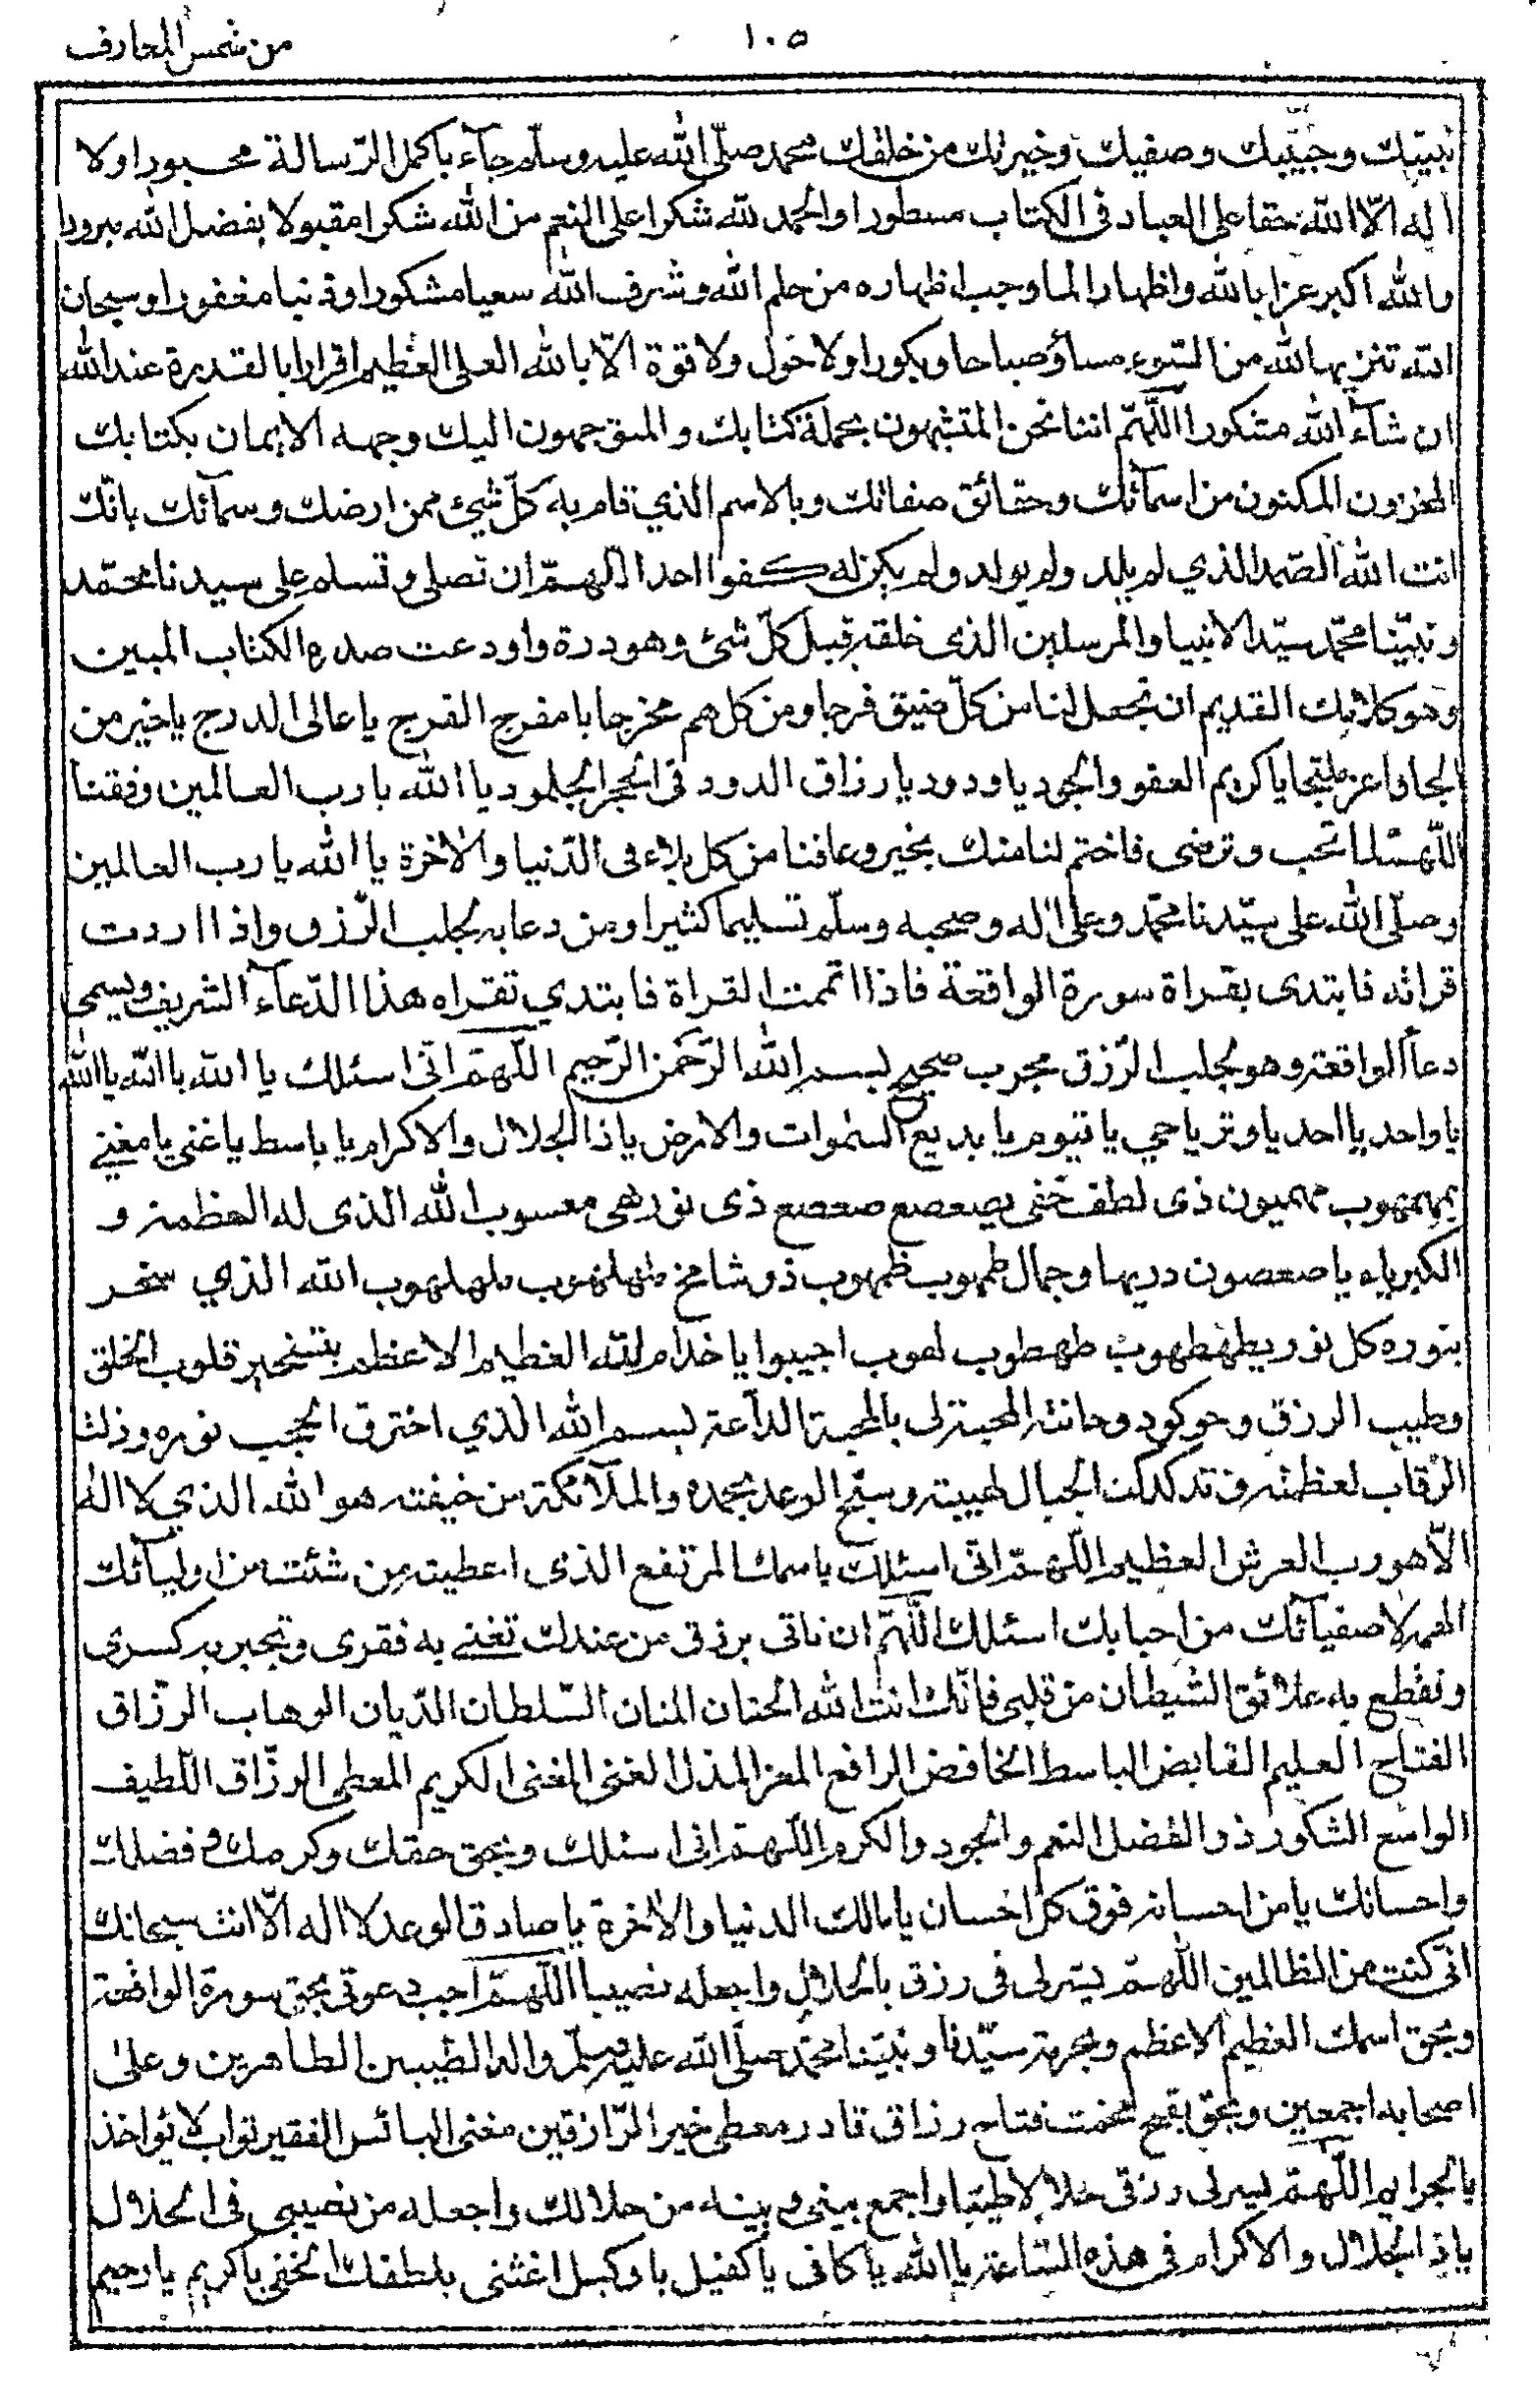 ١٠٥
من شمس المعارف
نبيّك وحبيبك وصفيك وخيرتك من خلقك محمد صلّى الله عليه وسلّم جآء باكمل الرّسالة محبورا ولا
اله الّا الله حقا على العباد فى الكتاب مسطورا والحمد لله شكرا على النعم من الله شكرا مقبولا بفضل الله مبرورا
والله اكبر عزا بالله واظهارا لما وجب اظهاره من حلم الله وشرف الله سعيا مشكورا وذنبا مغفورا وسبحان
الله تنزيها لله من السّوء مسآ وصباحا وبكورا ولا حول ولا قوة الّا بالله العلى العظيم اقرارا بالقدرة عند الله
ان شآء الله مشكورا اللّهمّ اننا نحن المتشبهون بحملة كتابك والمتوجهون اليك وجهه الايمان بكتابك
المخزون المكنون من اسمآئك وحقائق صفاتك وبالاسم الذي قام به كلّ شيئ من ارضك وسمآئك بانّك
انت الله الصّمد الذي لم يلد ولم يولد ولم يكن له كفوا احد اللهمّ ان تصلى وتسلم على سيدنا محمّد
ونبيّنا محمّد سيّد الانبيا والمرسلين الذى خلقته قبل كلّ شئ وهو درة واودعت صدره الكتاب المبين
وهو كلامك القديم ان تجعل لنا من كلّ ضيق فرجا ومن كل هم مخرجا يا مفرج الفرج يا عالى الدرج يا خير من
لجا واعز ملتجا يا كريم العفو والجود يا ودود يا رزاق الدود فى الحجر الجلمود يا الله يا رب العالمين وفقنا
اللّهمّ لما تحب وترضى فاختم لنا منك بخير وعافنا من كل بلاء فى الدّنيا والاخرة يا الله يا رب العالمين
وصلّى الله على سيّدنا محمّد وعلى اله وصحبه وسلّم تسليما كثيرا ومن دعا به لجلب الرّزق واذا اردت
قراته فابتدى بقراة سورة الواقعة فاذا اتممت القراة فابتدي تقراه هذا الدّعآء الشريف ويسمى
دعآ الواقعة وهو لجلب الرّزق مجرب صحيح بسم الله الرّحمن الرّحيم اللّهمّ انّى اسئلك يا الله يا الله يا الله
يا واحد يا احد يا وتر يا حي يا قيوم يا بديع السموات والارض يا ذا الجلال والاكرام يا باسط يا غنى يا مغني
بمهمهوب مهميون ذى لطف خفى بصعصع صعصع ذى نور هى معسوب الله الذى له العظمة و
الكبرياء يا صعصون دريها وجمال طهوب ظهوب ذو شامخ طهلهوب ملهلهوب الله الذي سخر
بنوره كل نور بطهطهوب طهطوب لهوب اجيبوا يا خدام لله العظيم الاعظم بتسخير قلوب الخلق
وطيب الرزق وحوكود وحانة المحبة لى بالمحبة الدآئمة بسم الله الذي اخترق الحجب نوره وذلت
الرّقاب لعظمته وتدكدكت الجبال لهيبته وسبّح الرعد بحمده والملآئكة من خيفته هو الله الذي لا اله
الّا هو رب العرش العظيم اللّهمّ انّى اسئلك باسمك المرتفع الذى اعطيته من شئت من اوليآئك
الهم لاصفيآئك من احبابك اسئلك اللّهمّ ان تاتى برزق من عندك تغني به فقرى وتجبر به كسرى
وتقطع به علائق الشيطان من قلبى فانّك انت الله الحنان المنان السّلطان الدّيان الوهاب الرّزاق
الفتاح العليم القابض الباسط الخافض الرافع المعز المذل الغنى المغنى الكريم المعطى الرزّاق اللّطيف
الواسع الشكور ذو الفضل النعم والجود والكرم اللّهمّ انى اسئلك وبحق حقك وكرمك و فضلك
واحسانك يا من احسانه فوق كلّ احسان يا مالك الدنيا والاخرة يا صادق الوعد لا اله الّا انت سبحانك
انّى كنت من الظالمين اللّهمّ يسّر لى فى رزق بالحلال واجعله نصيبا اللّهمّ اجب دعوتى بحق سورة الواقعة
وبحق اسمك العظيم الاعظم وبحرمة سيّدنا ونبيّنا محمّد صلّى الله عليه وسلّم واله الطّيبين الطاهرين وعلى
اصحابه اجمعين وبحق بقح مخمت فتاح رزاق قادر معطى خير الرّازقين مغنى البائس الفقير تواب لا يؤاخذ
بالجرايم اللّهمّ يسر لى رزقى حلالا طيبا واجمع بينى وبينه من حلالك واجعله من نصيبى فى الحلال
يا ذا الجلال والاكرام فى هذه السّاعة يا الله يا كافى يا كفيل يا وكيل اغثنى بلطفك الخفى يا كريم يا رحيم